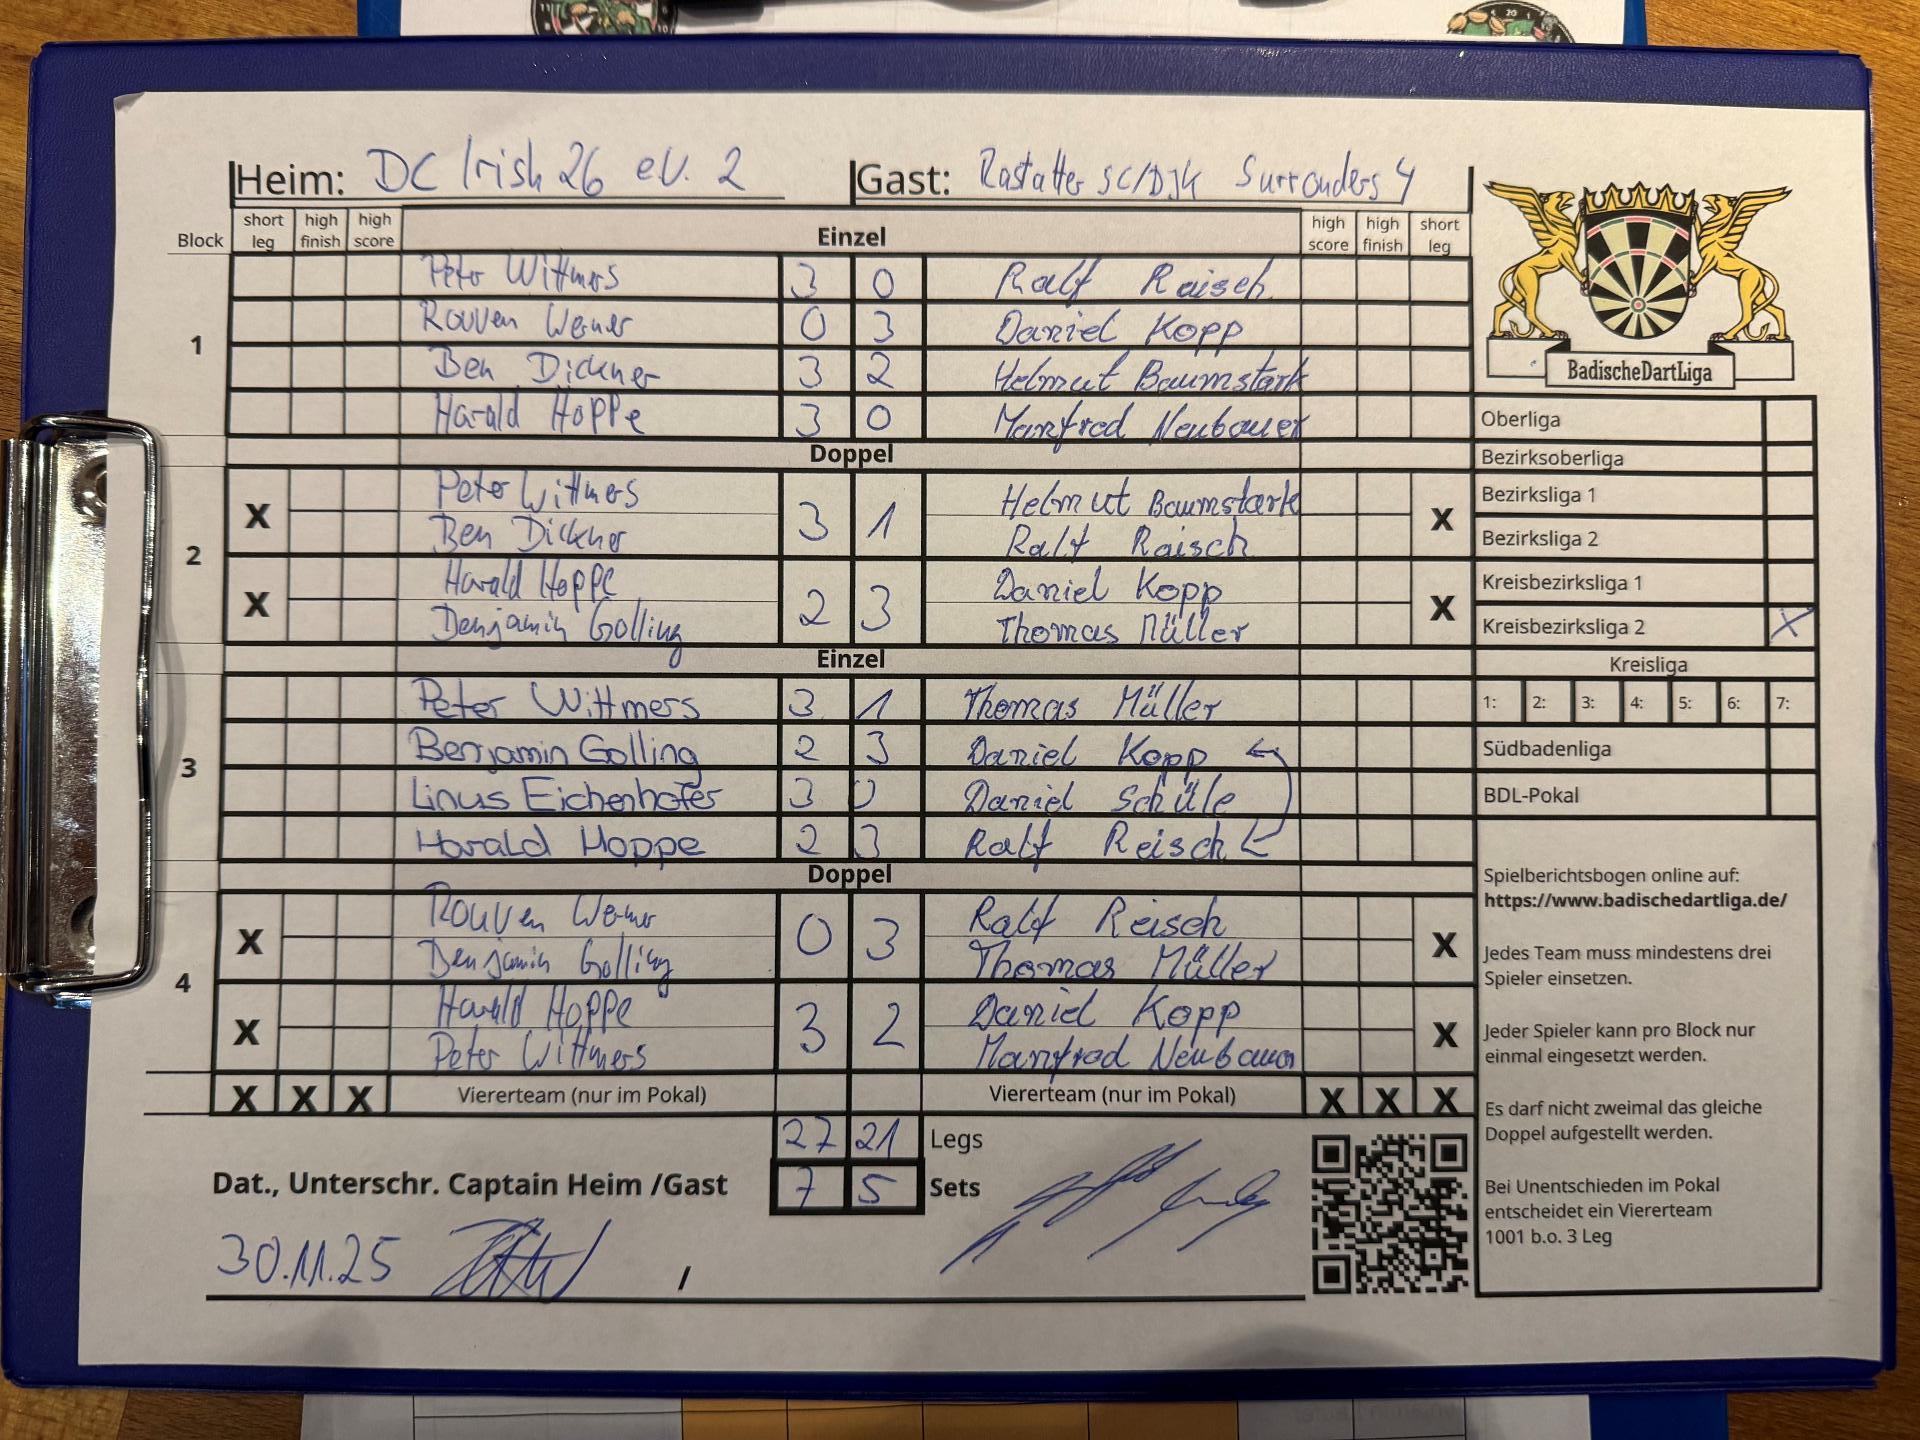 Heim: DC Irish 26 e.V. 2 Gast: Rastatter SC/DJK Surrounders 4
Block short leg high finish high score Einzel high score high finish short leg
1
Peter Wittmers 3 0 Ralf Raisch
Rouven Werner 0 3 Daniel Kopp
Ben Dickner 3 2 Helmut Baumstark
Harald Hoppe 3 0 Manfred Neubauer
Doppel
2
X Peter Wittmers 3 1 Helmut Baumstark X
Ben Dickner Ralf Raisch
X Harald Hoppe 2 3 Daniel Kopp X
Benjamin Golling Thomas Müller
Einzel
3
Peter Wittmers 3 1 Thomas Müller
Benjamin Golling 2 3 Daniel Kopp
Linus Eichenhofer 3 0 Daniel Schüle
Harald Hoppe 2 3 Ralf Reisch
Doppel
4
X Rouven Werner 0 3 Ralf Reisch X
Benjamin Golling Thomas Müller
X Harald Hoppe 3 2 Daniel Kopp X
Peter Wittmers Manfred Neubauer
X X X Viererteam (nur im Pokal) Viererteam (nur im Pokal) X X X
27 21 Legs
Dat., Unterschr. Captain Heim /Gast 7 5 Sets
30.11.25 /
BadischeDartLiga
Oberliga
Bezirksoberliga
Bezirksliga 1
Bezirksliga 2
Kreisbezirksliga 1
Kreisbezirksliga 2 X
Kreisliga
1: 2: 3: 4: 5: 6: 7:
Südbadenliga
BDL-Pokal
Spielberichtsbogen online auf:
https://www.badischedartliga.de/
Jedes Team muss mindestens drei
Spieler einsetzen.
Jeder Spieler kann pro Block nur
einmal eingesetzt werden.
Es darf nicht zweimal das gleiche
Doppel aufgestellt werden.
Bei Unentschieden im Pokal
entscheidet ein Viererteam
1001 b.o. 3 Leg